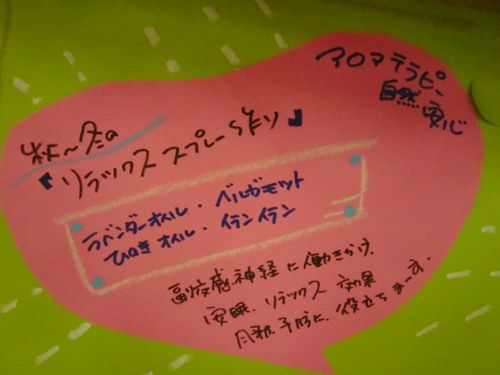 アロマテラピー
自然 安心
秋～冬の
『リラックス スプレー作り』
ラベンダーオイル・ベルガモット
ひのきオイル・イランイラン
副交感神経に働きかけ、
安眠、リラックス 効果
風邪予防に、役立ちまーす。